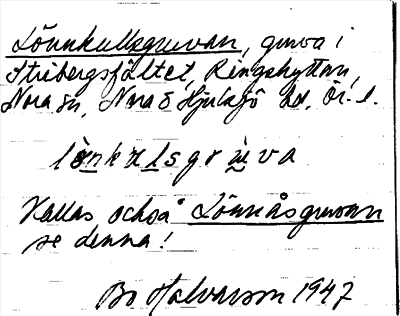 Lönnkullsgruvan, gruva i
Stribergsfältet, Ringshyttan,
Nora sn, Nora & Hjulsjö bd. Ör. l.
lònkulsgrùva
Kallas också Lönnåsgruvan
se denna!
Bo Halvarson 1947